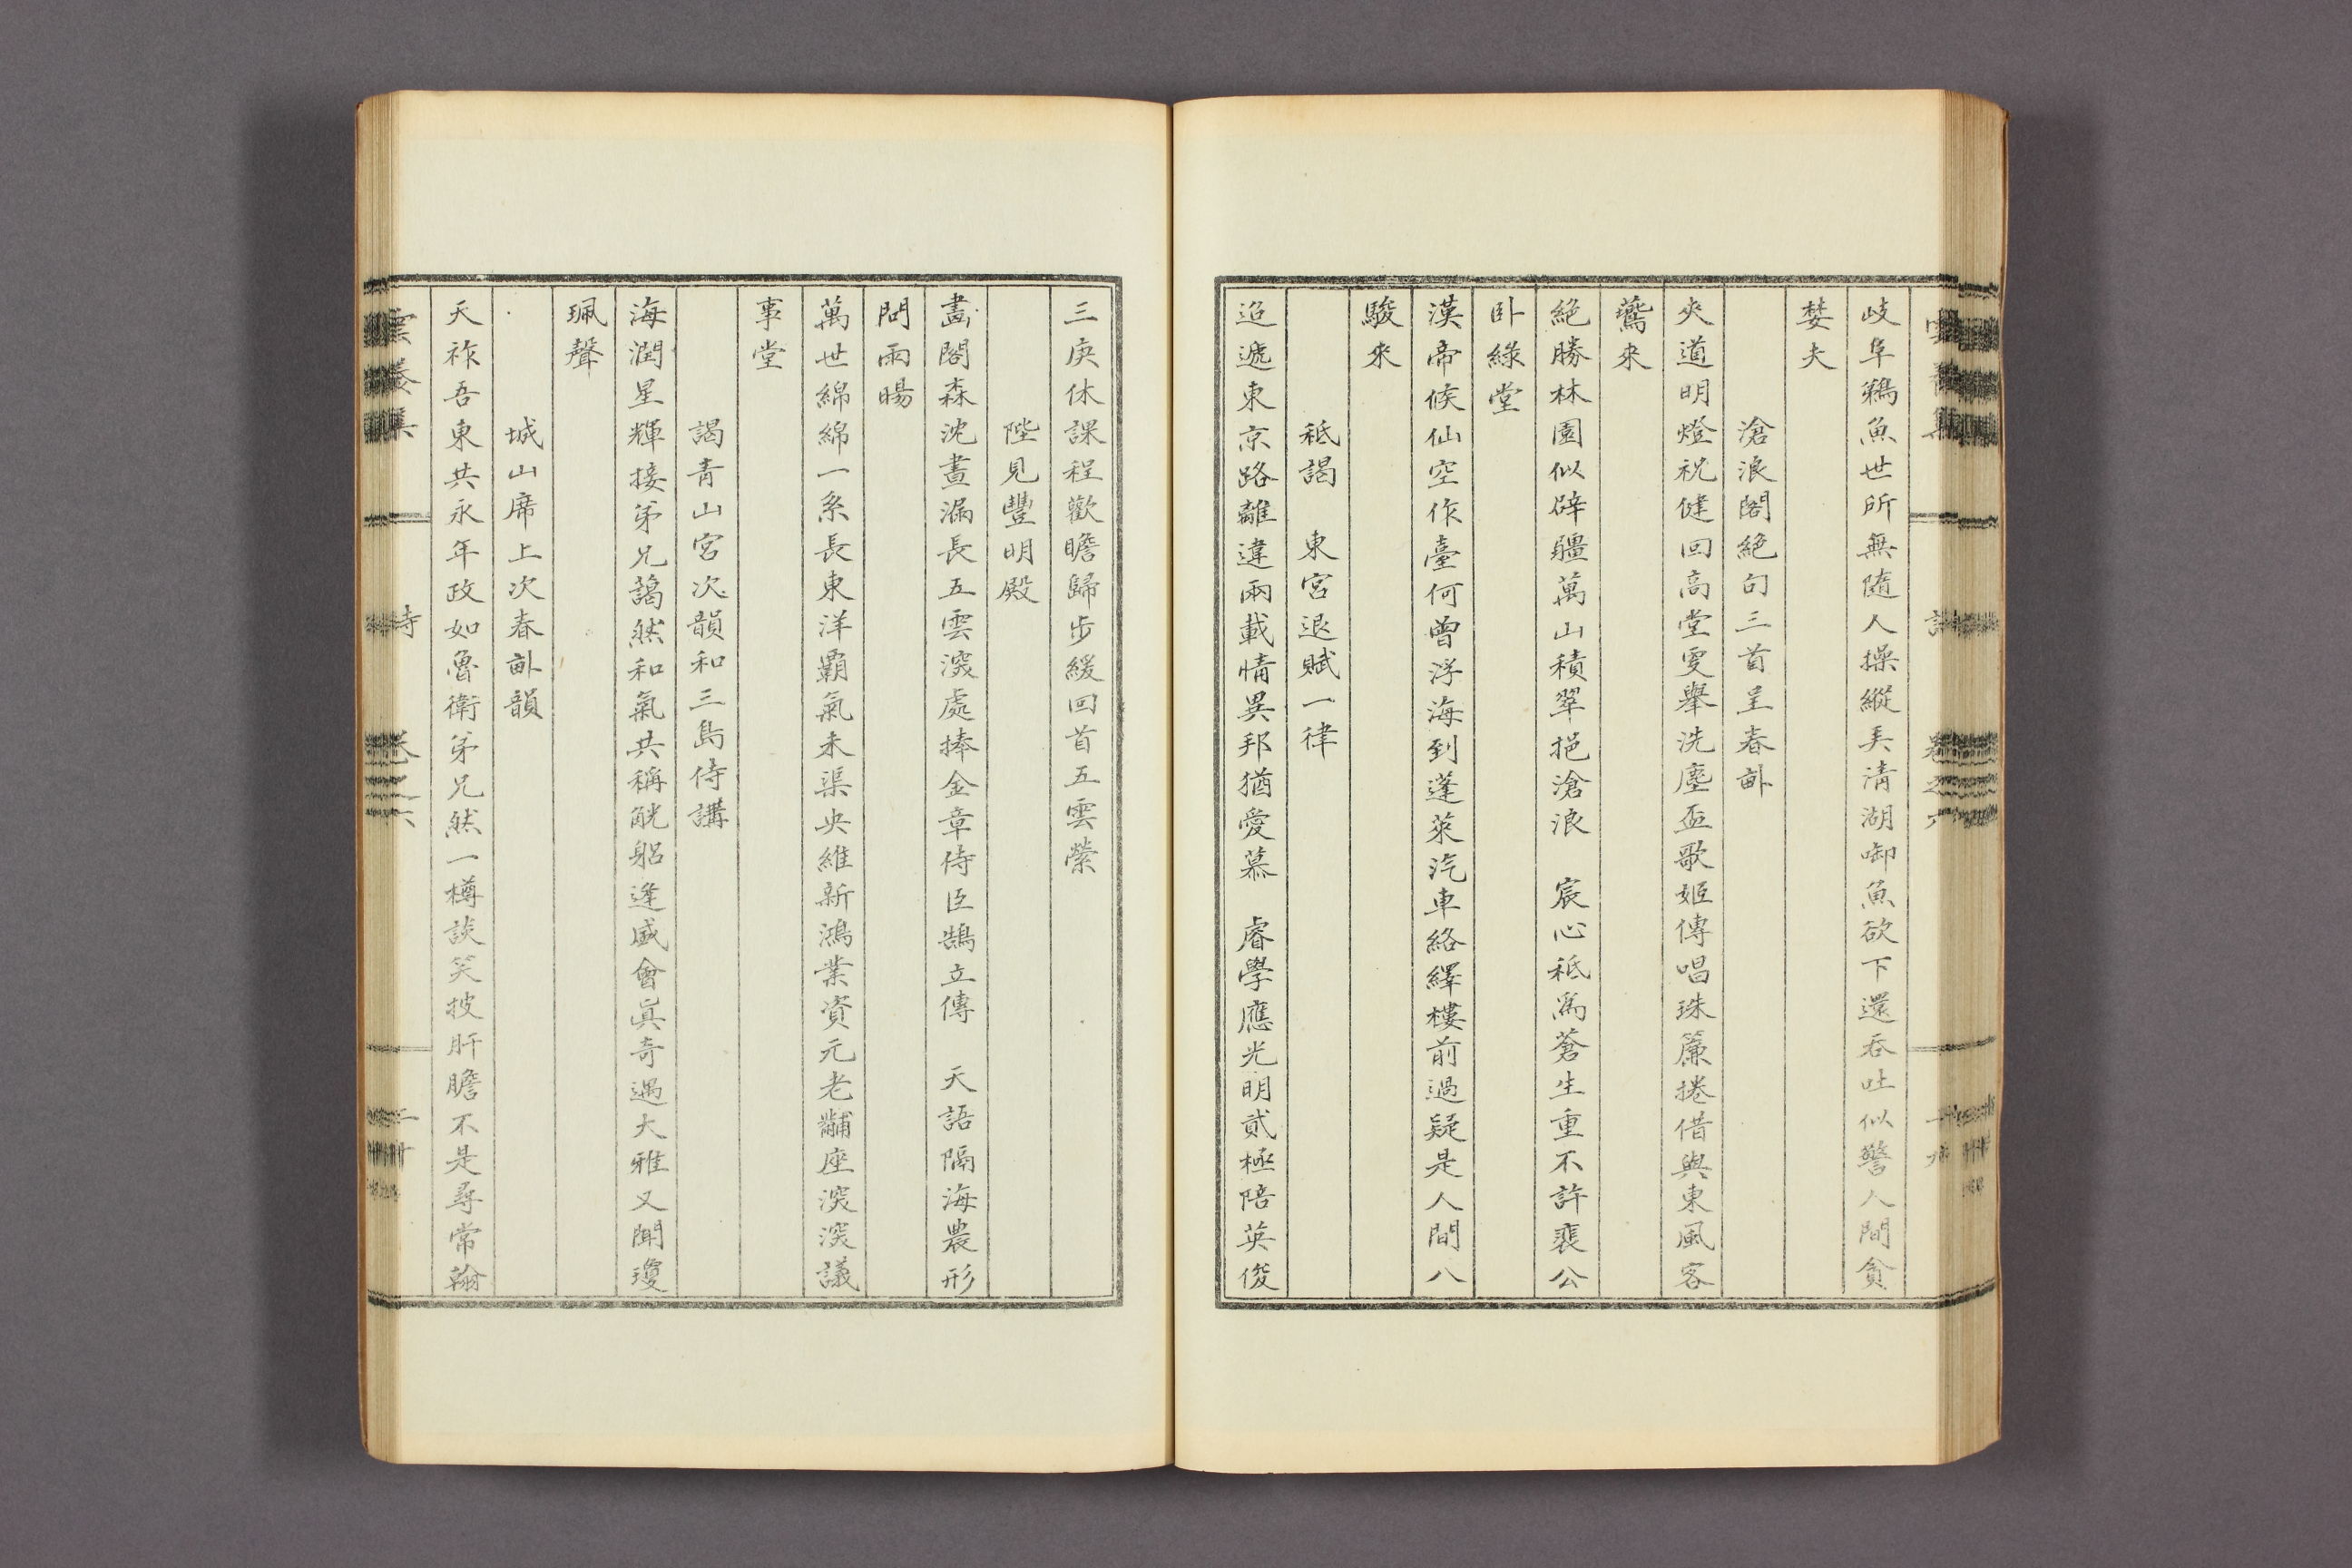 岐阜鵜魚世所無隨人操縱美淸湖啣魚欲下還呑吐似警人間貪
婪夫
滄浪閣絕句三首呈春畝
夾道明燈祝健回高堂更擧洗塵盃歌姬傳唱珠簾捲借與東風客
鶯來
絕勝林園似辟疆萬山積翠挹滄浪　宸心祗爲蒼生重不許裴公
卧綠堂
漢帝候仙空作臺何曾浮海到蓬萊汽車絡繹樓前過疑是人間八
駿來
祗謁　東宮退賦一律
迢遞東京路離違兩載情異邦猶愛慕　睿學應光明貳極陪英俊
三庚休課程歡瞻歸步緩回首五雲縈
陛見豐明殿
畫閣森沈晝漏長五雲深處捧金章侍臣鵠立傳　天語隔海農形
問雨暘
萬世綿綿一系長東洋覇氣未渠央維新鴻業資元老黼座深深議
事堂
謁靑山宮次韻和三島侍講
海潤星輝接弟兄藹然和氣共稱觥躬逢盛會眞奇遇大雅又聞瓊
珮聲
城山席上次春畝韻
天祚吾東共永年政如魯衛弟兄然一樽談笑披肝膽不是尋常翰
詩
卷之六